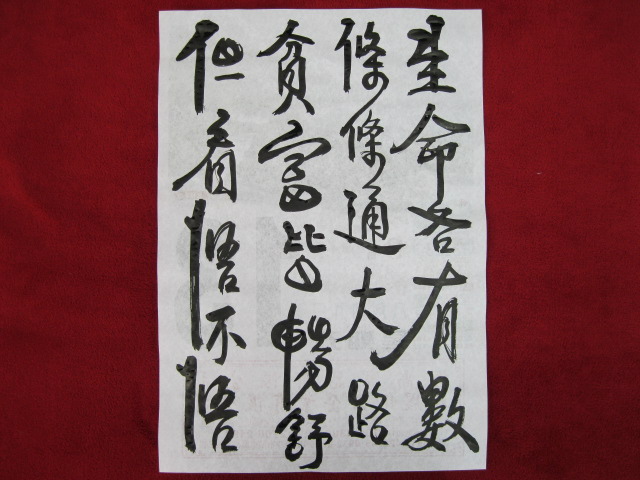 命各有數
條條通大路
貧富皆暢舒
但看悟不悟